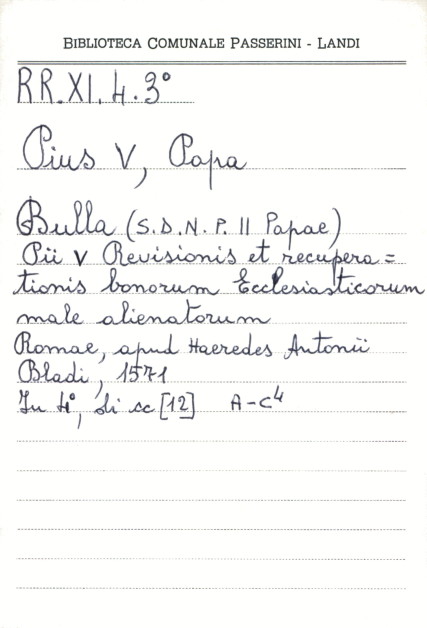 BIBLIOTECA COMUNALE PASSERINI - LANDI
RR.XI.4.3°
Pius V, Papa
Bulla (S.D.N.P. II Papae)
Pii V Revisionis et recupera=
tionis bonorum Ecclesiasticorum
male alienatorum
Romae, apud Haeredes Antonii
Bladi, 1571
In 4°, di cc [12] A-C⁴